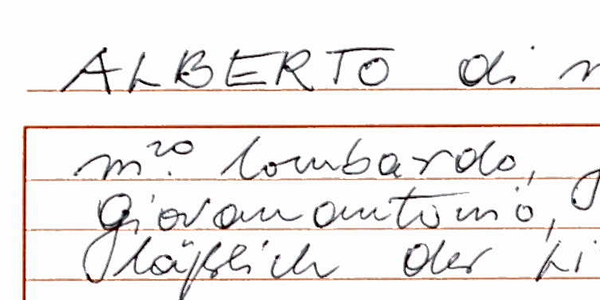 ALBERTO di
m.ro lombardo,
Giovanantonio,
läßlich der